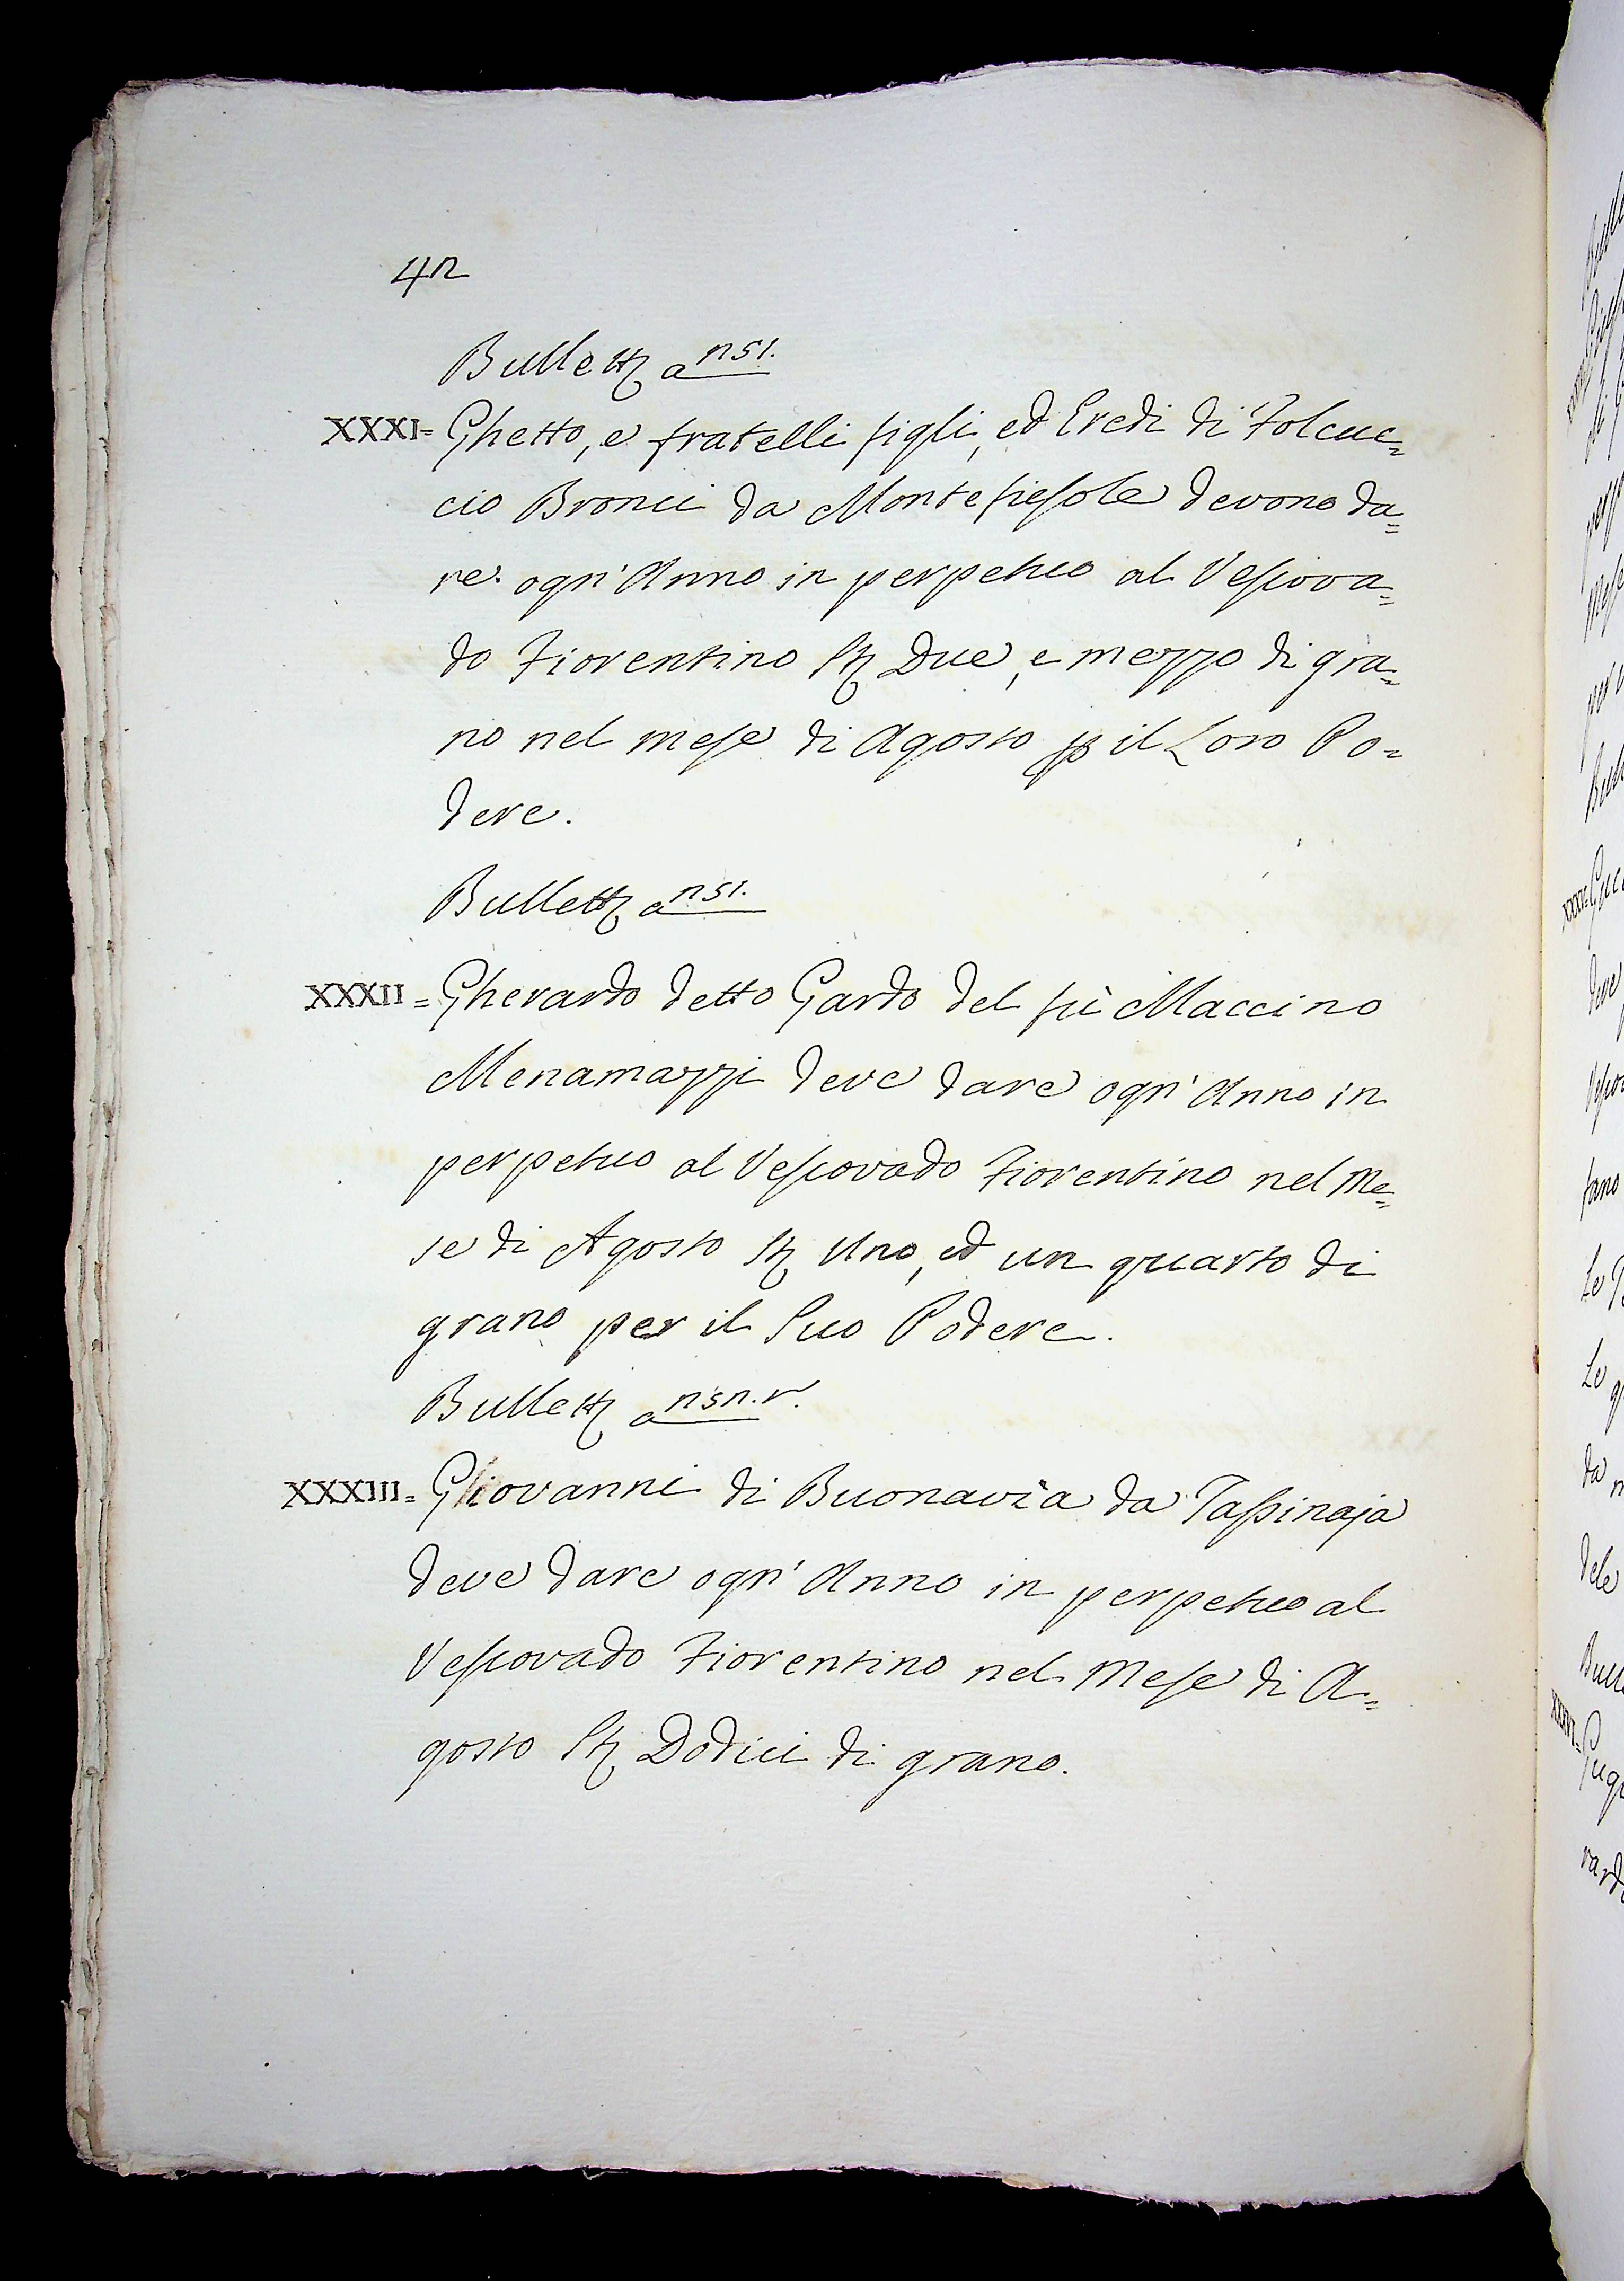 42
Bullett a 251.
XXXI= Ghetto, e fratelli figli, ed Eredi di Folcuc=
cio Bronci da Montefiesole devono da=
re ogn' Anno in perpetuo al Vescova=
do Fiorentino St Due, e mezzo di gra=
no nel mese di Agosto p il Loro Po=
dere.
Bullett a 251.
XXXII= Gherardo detto Gardo del fù Maccino
Menamazzi deve dare ogn' Anno in
perpetuo al Vescovado Fiorentino nel Me=
se di Agosto St Uno, ed un quarto di
grano per il Suo Podere.
Bullett a 252.r.
XXXIII= Giovanni di Buonavia da Tassinaja
deve dare ogn' Anno in perpetuo al
Vescovado Fiorentino nel Mese di A=
gosto St Dodici di grano.